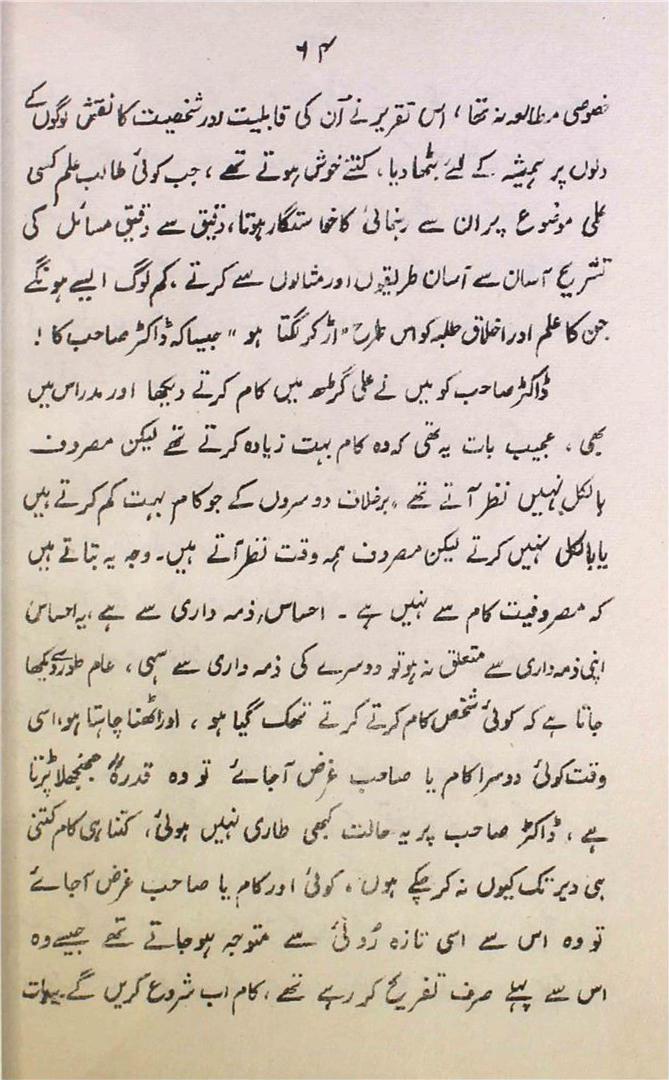 ۶۴
خصوصی مطالعہ نہ تھا، اس تقریر نے اُن کی قابلیت اور شخصیت کا نقش لوگوں کے
دلوں پر ہمیشہ کے لئے بٹھا دیا، کتنے خوش ہوتے تھے، جب کوئی طالب علم کسی
علمی موضوع پر ان سے رہنمائی کا خواستگار ہوتا، دقیق سے دقیق مسائل کی
تشریح آسان سے آسان طریقوں اور مثالوں سے کرتے، کم لوگ ایسے ہونگے
جن کا علم اور اخلاق طلبہ کو اس طرح "اڑ کر لگتا ہو" جیسا کہ ڈاکٹر صاحب کا!
ڈاکٹر صاحب کو میں نے علی گڑھ میں کام کرتے دیکھا اور مدراس میں
بھی، عجیب بات یہ تھی کہ وہ کام بہت زیادہ کرتے تھے لیکن مصروف
بالکل نہیں نظر آتے تھے، برخلاف دوسروں کے جو کام بہت کم کرتے ہیں
یا بالکل نہیں کرتے لیکن مصروف ہمہ وقت نظر آتے ہیں۔ وجہ یہ بتاتے ہیں
کہ مصروفیت کام سے نہیں ہے۔ احساس ذمہ داری سے ہے، یہ احساس
اپنی ذمہ داری سے متعلق نہ ہو تو دوسرے کی ذمہ داری سے سہی، عام طور سے دیکھا
جاتا ہے کہ کوئی شخص کام کرتے کرتے تھک گیا ہو، اور اٹھنا چاہتا ہو، اسی
وقت کوئی دوسرا کام یا صاحب غرض آجائے تو وہ قدرۃً جھنجھلا پڑتا
ہے، ڈاکٹر صاحب پر یہ حالت کبھی طاری نہیں ہوئی، کتنا ہی کام کتنی
ہی دیر تک کیوں نہ کر چکے ہوں، کوئی اور کام یا صاحب غرض آجائے
تو وہ اس سے اسی تازہ رُوئی سے متوجہ ہو جاتے تھے جیسے وہ
اس سے پہلے صرف تفریح کر رہے تھے، کام اب شروع کریں گے۔ یہ بات